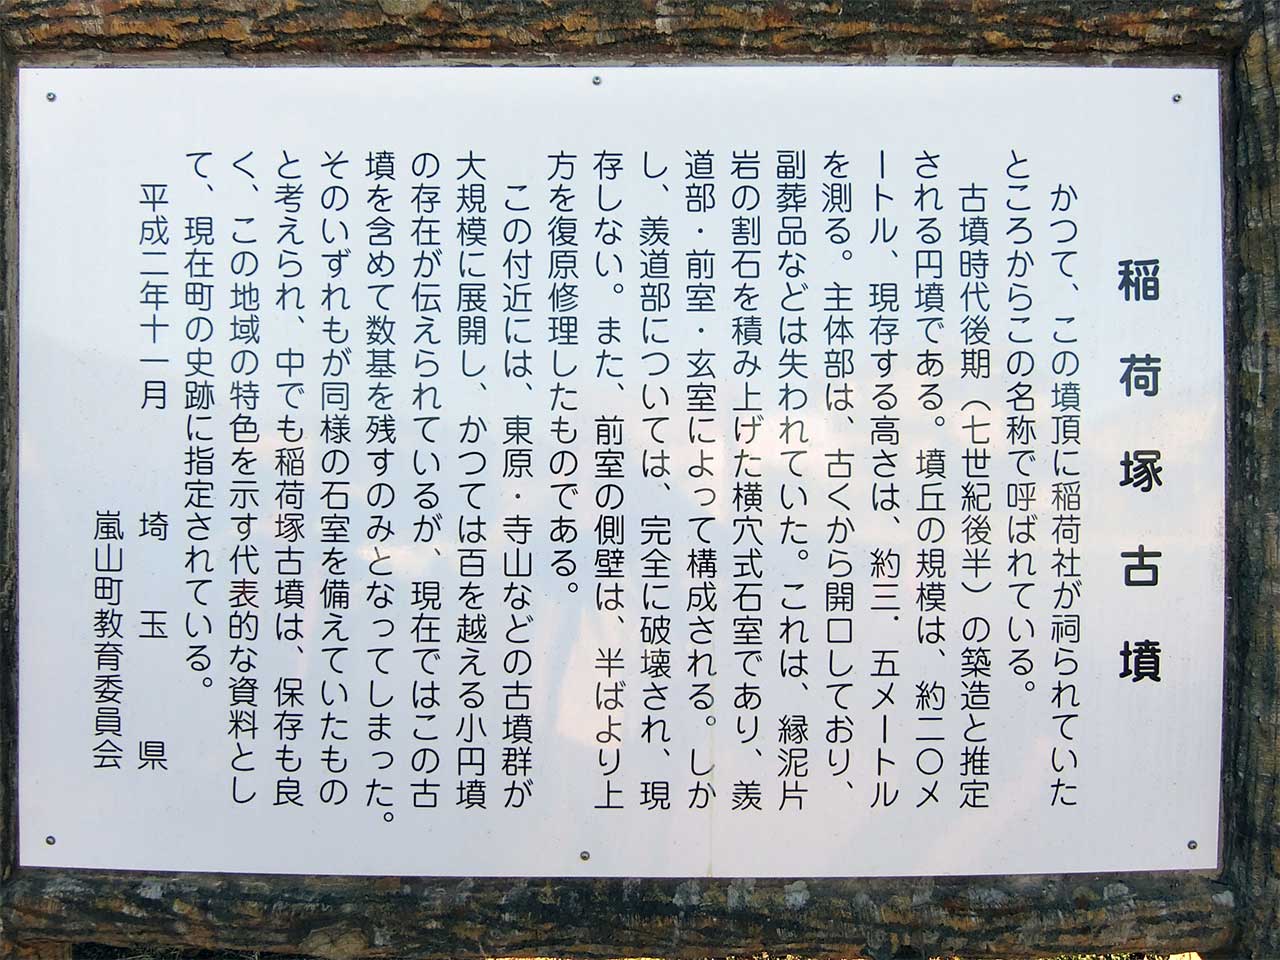 稲荷塚古墳
かつて、この墳頂に稲荷社が祠られていた
ところからこの名称で呼ばれている。
古墳時代後期（七世紀後半）の築造と推定
される円墳である。墳丘の規模は、約二〇メ
ートル、現存する高さは、約三．五メートル
を測る。主体部は、古くから開口しており、
副葬品などは失われていた。これは、緑泥片
岩の割石を積み上げた横穴式石室であり、羨
道部・前室・玄室によって構成される。しか
し、羨道部については、完全に破壊され、現
存しない。また、前室の側壁は、半ばより上
方を復原修理したものである。
この付近には、東原・寺山などの古墳群が
大規模に展開し、かつては百を越える小円墳
の存在が伝えられているが、現在ではこの古
墳を含めて数基を残すのみとなってしまった。
そのいずれもが同様の石室を備えていたもの
と考えられ、中でも稲荷塚古墳は、保存も良
く、この地域の特色を示す代表的な資料とし
て、現在町の史跡に指定されている。
平成二年十一月
埼玉県
嵐山町教育委員会